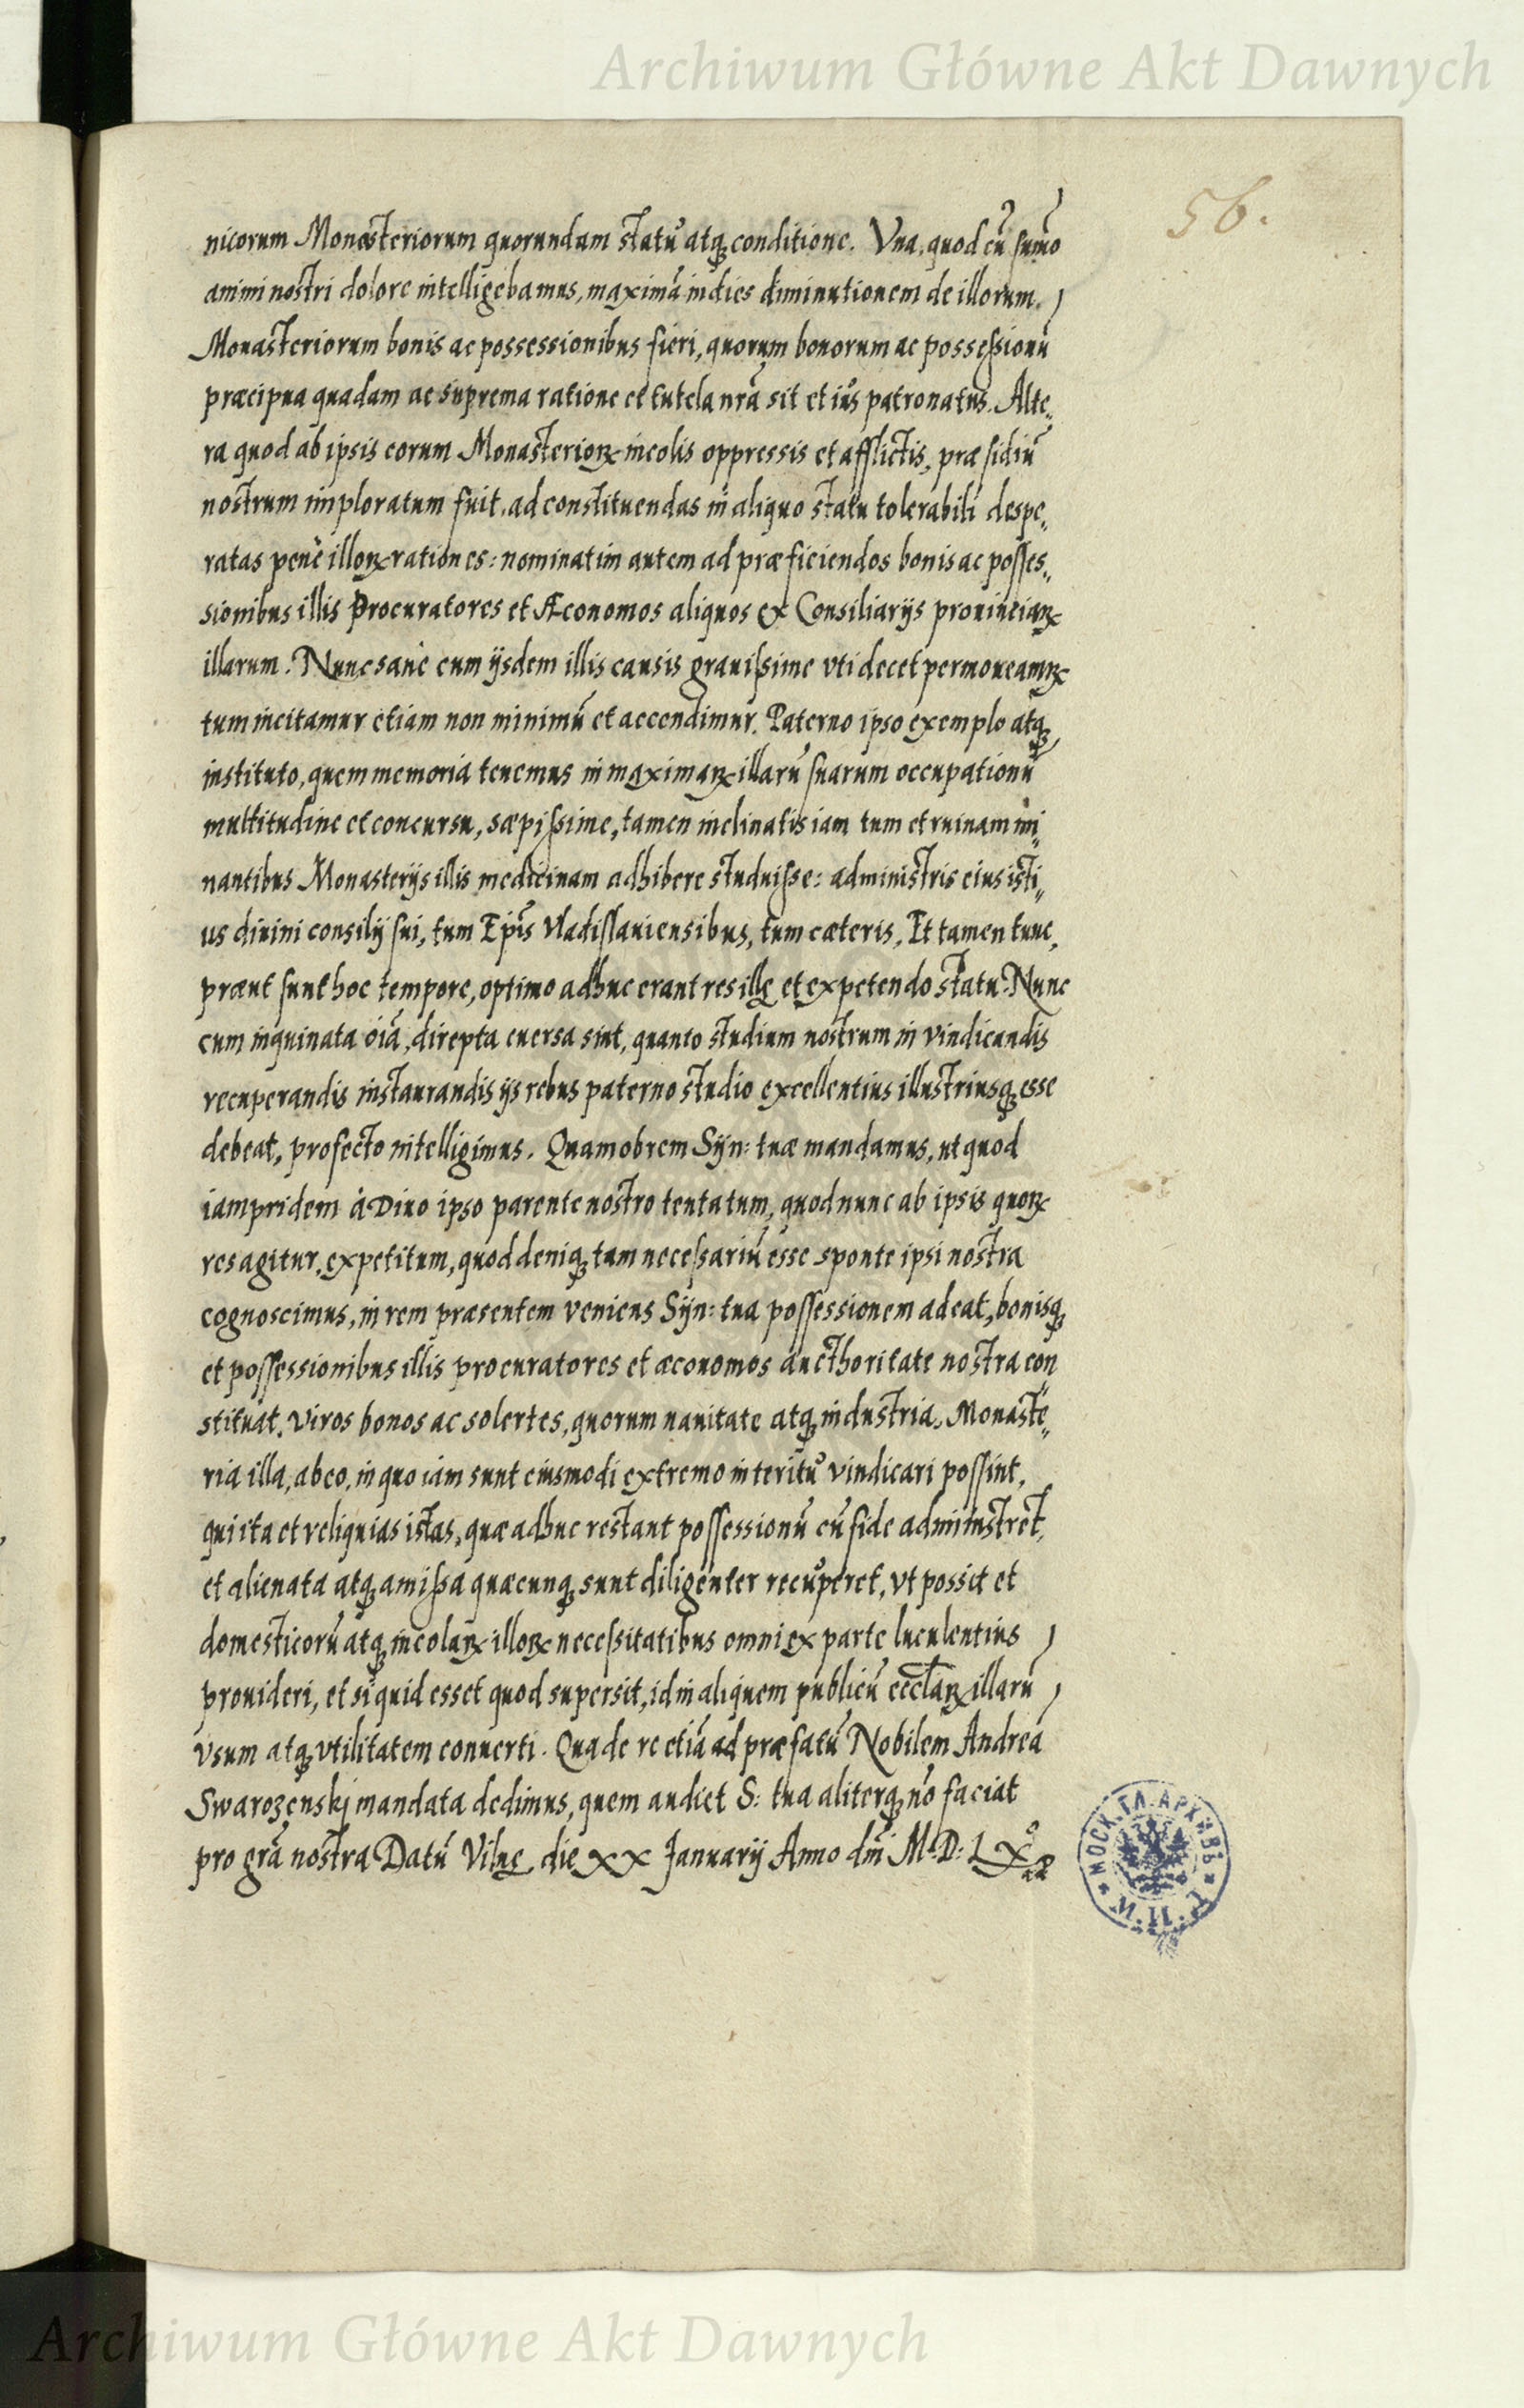 Archiwum Główne Akt Dawnych
56.
nicorum Monasteriorum quorundam statu atq; conditione. Vna, quod cū sum̄o
animi nostri dolore intelligebamus, maximā indies diminutionem de illorum
Monasteriorum bonis ac possessionibus fieri, quorum bonorum ac possessionū
præcipua quadam ac suprema ratione et tutela nrā sit et ius patronatus. Alte„
ra quod ab ipsis eorum Monasterioꝝ incolis oppressis et afflictis, præsidiū
nostrum imploratum fuit, ad constituendas in aliquo statu tolerabili despe„
ratas penè illoꝝ rationes: nominatim autem ad præficiendos bonis ac posses„
sionibus illis Procuratores et Æconomos aliquos ex Consiliarijs prouinciaꝝ
illarum. Nunc sanè cum ijsdem illis causis grauissime vti decet permoueamꝝ
tum incitamur etiam non minimū et accendimur. Paterno ipso exemplo atq;
instituto, quem memoria tenemus in maximaꝝ illarū suarum occupationū
multitudine et concursu, sæpissime, tamen inclinatis iam tum et ruinam mi„
nantibus Monasterijs illis medicinam adhibere studuisse: administris eius isti„
us diuini consilij sui, tum Ep̄is Vladislauiensibus, tum cæteris. Et tamen tunc,
præut sunt hoc tempore, optimo adhuc erant res illę et expetendo statu. Nunc
cum inquinata oīa, direpta euersa sint, quanto studium nostrum in vindicandis
recuperandis instaurandis ijs rebus paterno studio excellentius illustriusq; esse
debeat, profecto intelligimus. Quamobrem Sÿn: tuæ mandamus, ut quod
iampridem à Diuo ipso parente nostro tentatum, quod nunc ab ipsis quoꝝ
res agitur, expetitum, quod deniq; tam necessariū esse sponte ipsi nostra
cognoscimus, in rem præsentem veniens Sÿn: tua possessionem adeat, bonisq;
et possessionibus illis procuratores et æconomos aucthoritate nostra con
stituat. Viros bonos ac solertes, quorum nauitate atq; industria, Monaste„
ria illa, ab eo, in quo iam sunt eiusmodi extremo interitu vindicari possint,
qui ita et reliquias istas, quæ adhuc restant possessionū cū fide administret,
et alienata atq; amissa quæcunq; sunt diligenter recuperet, vt possit et
domesticorū atq; incolaꝝ illoꝝ necessitatibus omni ex parte luculentius
prouideri, et si quid esset quod supersit, id in aliquem publicū eccl̄aꝝ illarū
vsum atq; vtilitatem conuerti. Qua de re etiā ad præfatū Nobilem Andreā
Swarozenskj mandata dedimus, quem audiet S: tua aliterq; nō faciat
pro grā nostra Datū Vilnę die XX Januarij Anno dn̄i M: D: LXº
МОСК. ГЛ. АРХИВЪ М. И. Д.
Archiwum Główne Akt Dawnych